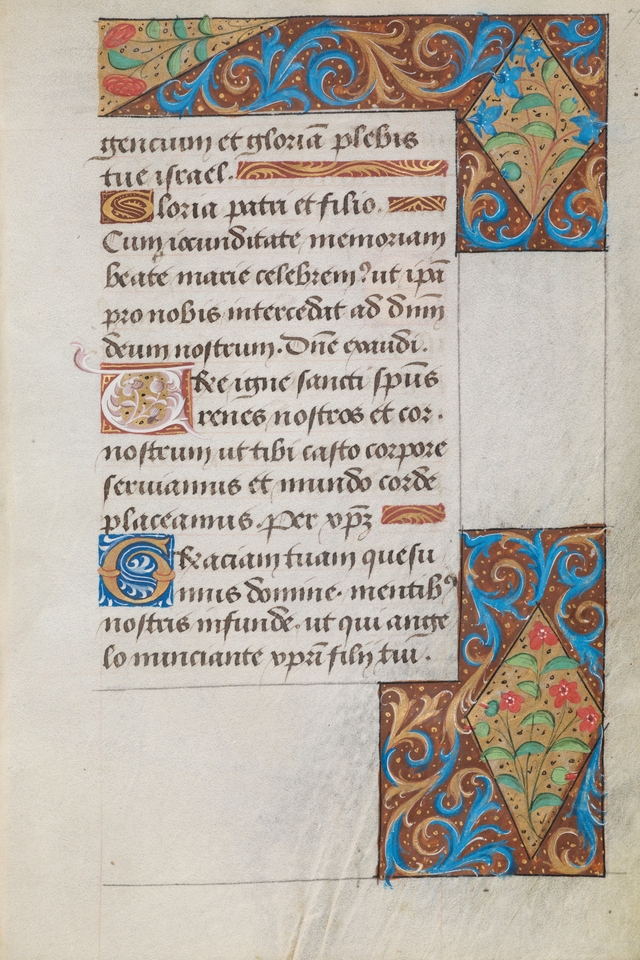 gencium et gloriã plebis
tue israel.
Gloria patri et filio.
Cum iocunditate memoriam
beate marie celebrem⁹ ut ipã
pro nobis intercedat ad dñm
deum nostrum. Dñe exaudi.
Vre igne sancti spũs
renes nostros et cor
nostrum ut tibi casto corpore
seruiamus et mundo corde
placeamus. Per xp̃ꝫ
Graciam tuam quesu
mus domine. mentib⁹
nostris infunde. ut qui ange
lo nunciante xp̃ri filij tui.